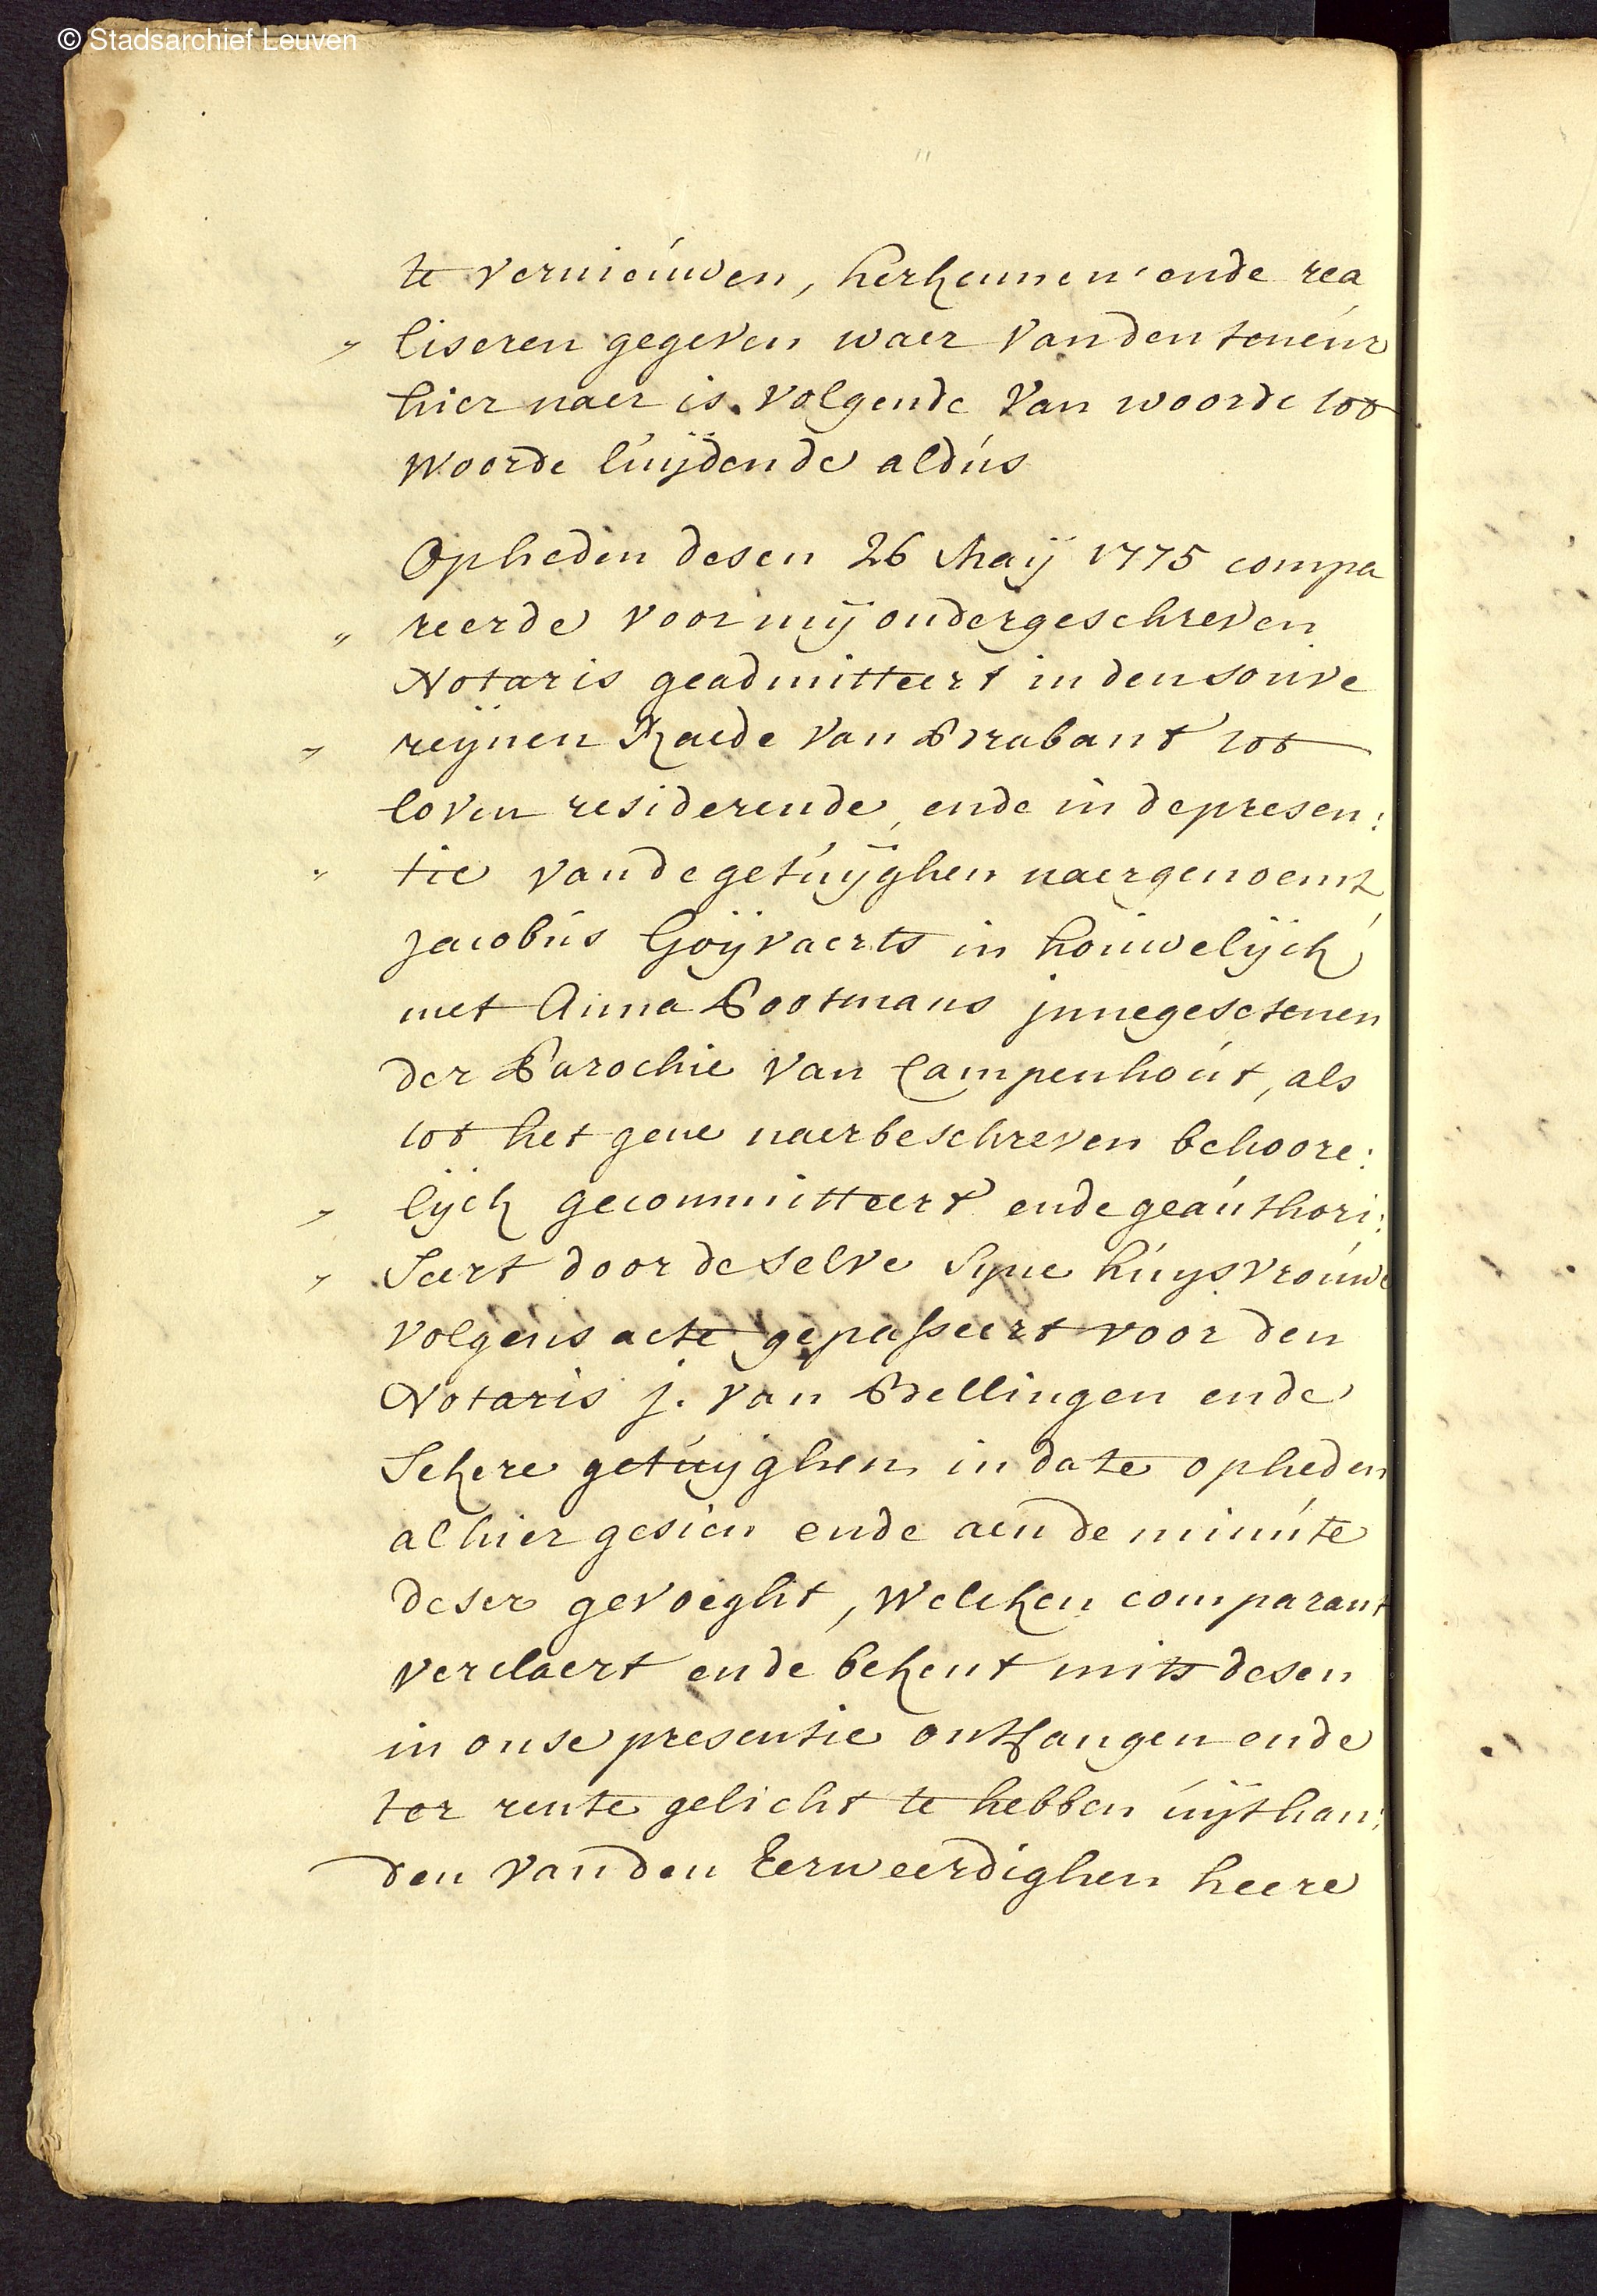 © Stadsarchief Leuven
te vernieuwen, herkennen ende rea
" liseren gegeven waer van den teneur
hier naer is volgende van woorde tot
woorde luijdende aldus
Opheden desen 26 Maij 1775 compa
" reerde voor mij ondergeschreven
Notaris geadmitteert in den souve
" reijnen Raede van Brabant tot
loven residerende, ende in de presen:
" tie van de getuijghen naergenoemt
jacobus Goijvaerts in houwelijck
met Anna Pootmans jnnegesetenen
der Parochie van Campenhout, als
tot het gene naerbeschreven behoore:
" lijck gecommitteert ende geauthori:
" Seert door de selve syne huysvrouwe
volgens acte gepasseert voor den
Notaris j. van Bellingen ende
Sekere getuyghen in date opheden
alhier gesien ende aen de minute
deser gevoeght, welcken comparant
verclaert ende bekent mits desen
in onse presentie ontfangen ende
ter rente gelicht te hebben uijt han:
den van den Eerweerdighen heere